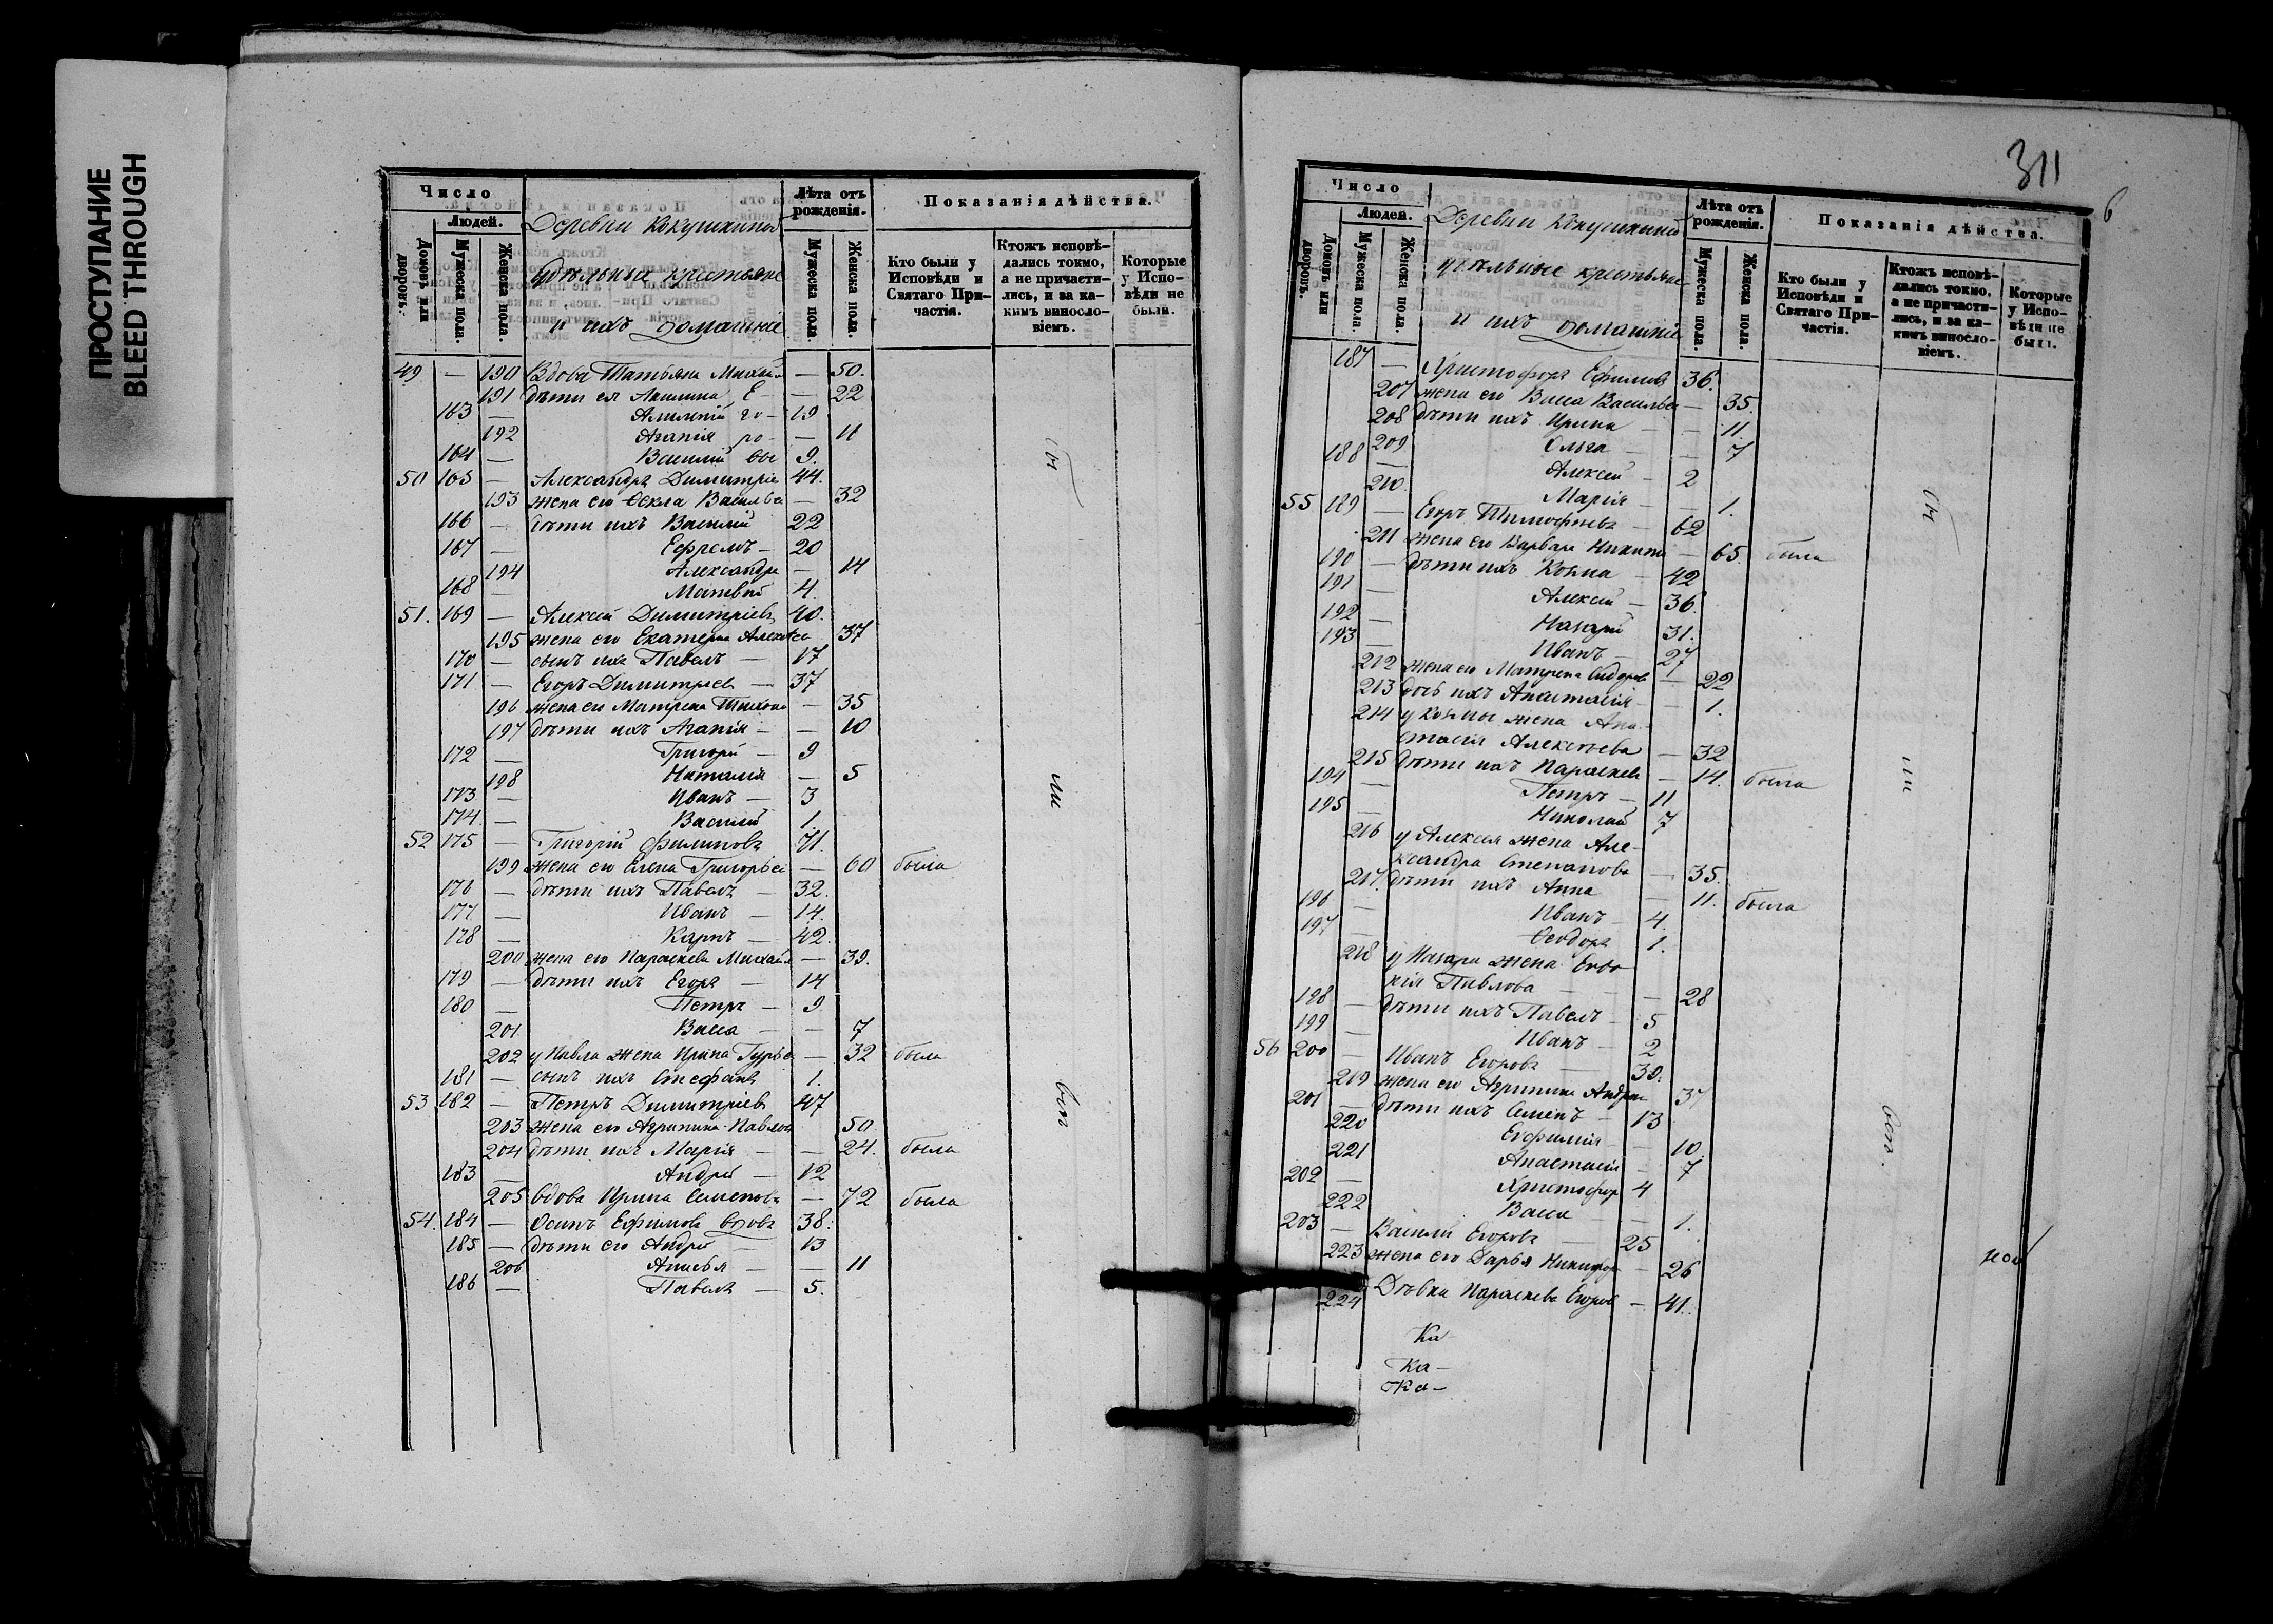 ПРОСТУПАНИЕ
BLEED THROUGH
Число
Людей.
Домовъ или дворовъ.
Мужеска пола.
Женска пола.
Деревни Кокушкина
Удѣльные крестьяне
и ихъ домашніе
Лѣта отъ рожденія.
Мужеска пола.
Женска пола.
Показанія дѣйства.
Кто были у Исповѣди и Святаго Причастія.
Ктожъ исповѣдались токмо, а не причастились, и за какимъ винословіемъ.
Которые у Исповѣди не были.
49 — 190 Вдова Татьяна Михай — 50.
191 дѣти ея Акилина — 22
163 — 19
192 Агапія — 11
164 — Василій 9.
50 165 — Александръ Димитріе 44.
193 жена его Ѳекла Василье — 32
166 — дѣти ихъ Василій 22
167 — Ефремъ — 20
194 Александра — 14
168 — Матвей 4.
51. 169 — Алексей Димитріевъ 40.
195 жена его Екатерина Алексее 37
170 — сынъ ихъ Павелъ — 17
171 — Егоръ Димитріев — 37
196 жена его Матрена Тихоно — 35
197 дѣти ихъ Агапія — — 10
172 — Григорій — 9
198 Наталія — 5
173 — Иванъ — 3
174. — Василій 1.
52 175 — Григорій Филиповъ 71.
199 жена его Елена Григорьев — 60 была
176 — дѣти ихъ Павелъ — 32.
177 — Иванъ — 14.
178 — Карпъ — 42.
200 жена его Параскева Михайл — 39.
179 — дѣти ихъ Егоръ — 14
180 — Петръ — 9
201 Васса — — 7
202 у Павла жена Ирина Гурьев — 32 была
181 — сынъ ихъ Стефанъ 1.
53 182 — Петръ Димитріевъ 47
203 жена его Агрипина Павлов 50
204 дѣти ихъ Марія — — 24. была
183 — Андрей — 12
205 вдова Ирина Семенова — 72 была
54. 184 — Осипъ Ефимовъ вдовъ 38.
185 — дѣти его Андрей — 13
206 Анисья — — 11
186 — Павелъ — 5.
311
6
Число
Людей.
Домовъ или дворовъ.
Мужеска пола.
Женска пола.
Деревни Кокушкино
удѣльные крестьяне
и ихъ домашніе
Лѣта отъ рожденія.
Мужеска пола.
Женска пола.
Показанія дѣйства.
Кто были у Исповѣди и Святаго Причастія.
Ктожъ исповѣдались токмо, а не причастились, и за какимъ винословіемъ.
Которые у Исповѣди не были.
187 — Христофоръ Ефимовъ 36.
207 жена его Васса Васильев — 35.
208 дѣти ихъ Ирина — — 11.
209 Ольга — — 7
188 — Алексей — 2
210. Марія — — 1.
55 189 — Егоръ Тимофеевъ — 62
211 жена его Варвара Никити — 65. была
190 — дѣти ихъ Козма — 42
191 — Алексей — 36.
192 — Назарій 31.
193 — Иванъ — 27
212 жена его Матрена Сидоров — 22
213 дочь ихъ Анастасія — — 1.
214 у Козмы жена Ана-
стасія Алексѣева — 32
215 дѣти ихъ Параскева — 14. была
194 — Петръ — 11
195 — Николай 7
216 у Алексея жена Але-
ксандра Степанова — 35.
217. дѣти ихъ Анна — 11. была
196 — Иванъ — 4.
197 — Ѳеодоръ 1.
218 у Назара жена Евдо-
кія Павлова — — 28
198 — дѣти ихъ Павелъ — 5
199 — Иванъ — 2
56 200 — Иванъ Егоровъ — 39.
219 жена его Агрипина Андрее 37
201 — дѣти ихъ Семенъ — 13
220 Евфимія — 10.
221 Анастасія — 7
202 — Христофор 4
222 Васса — — 1.
203 — Василій Егоровъ — 25
223 жена его Дарья Никифор — 26
224 Дѣвка Параскева Егоров — 41.
Ка
Ка —
Ка —